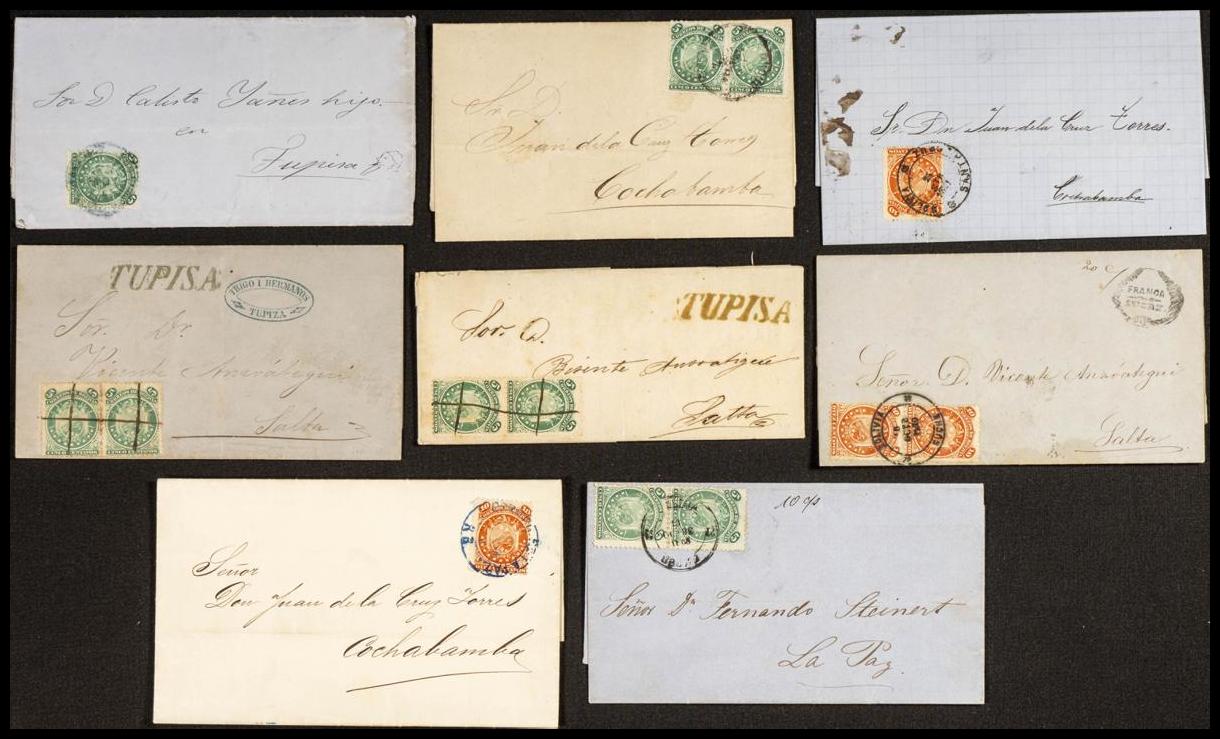 Sor D Calisto Yañes hijo
en
Tupisa
CINCO CENTAVOS
Sr. D.
Juan de la Cruz Torres
Cochabamba
Sr. Dn Juan de la Cruz Torres.
BOLIVIA
Cochabamba
TUPISA
TRIGO I HERMANOS
TUPIZA
Señ. Dr.
Vicente Anzoátegui
Salta
CINCO CENTAVOS
TUPISA
Sor. D.
Bisente Ansoategui
Salta
20 c
FRANCA
Señor D. Vicente Anzoátegui
BOLIVIA
Salta
Señor
Don Juan de la Cruz Torres
Cochabamba
10 c/s
Señor Dn Fernando Steinert
La Paz.